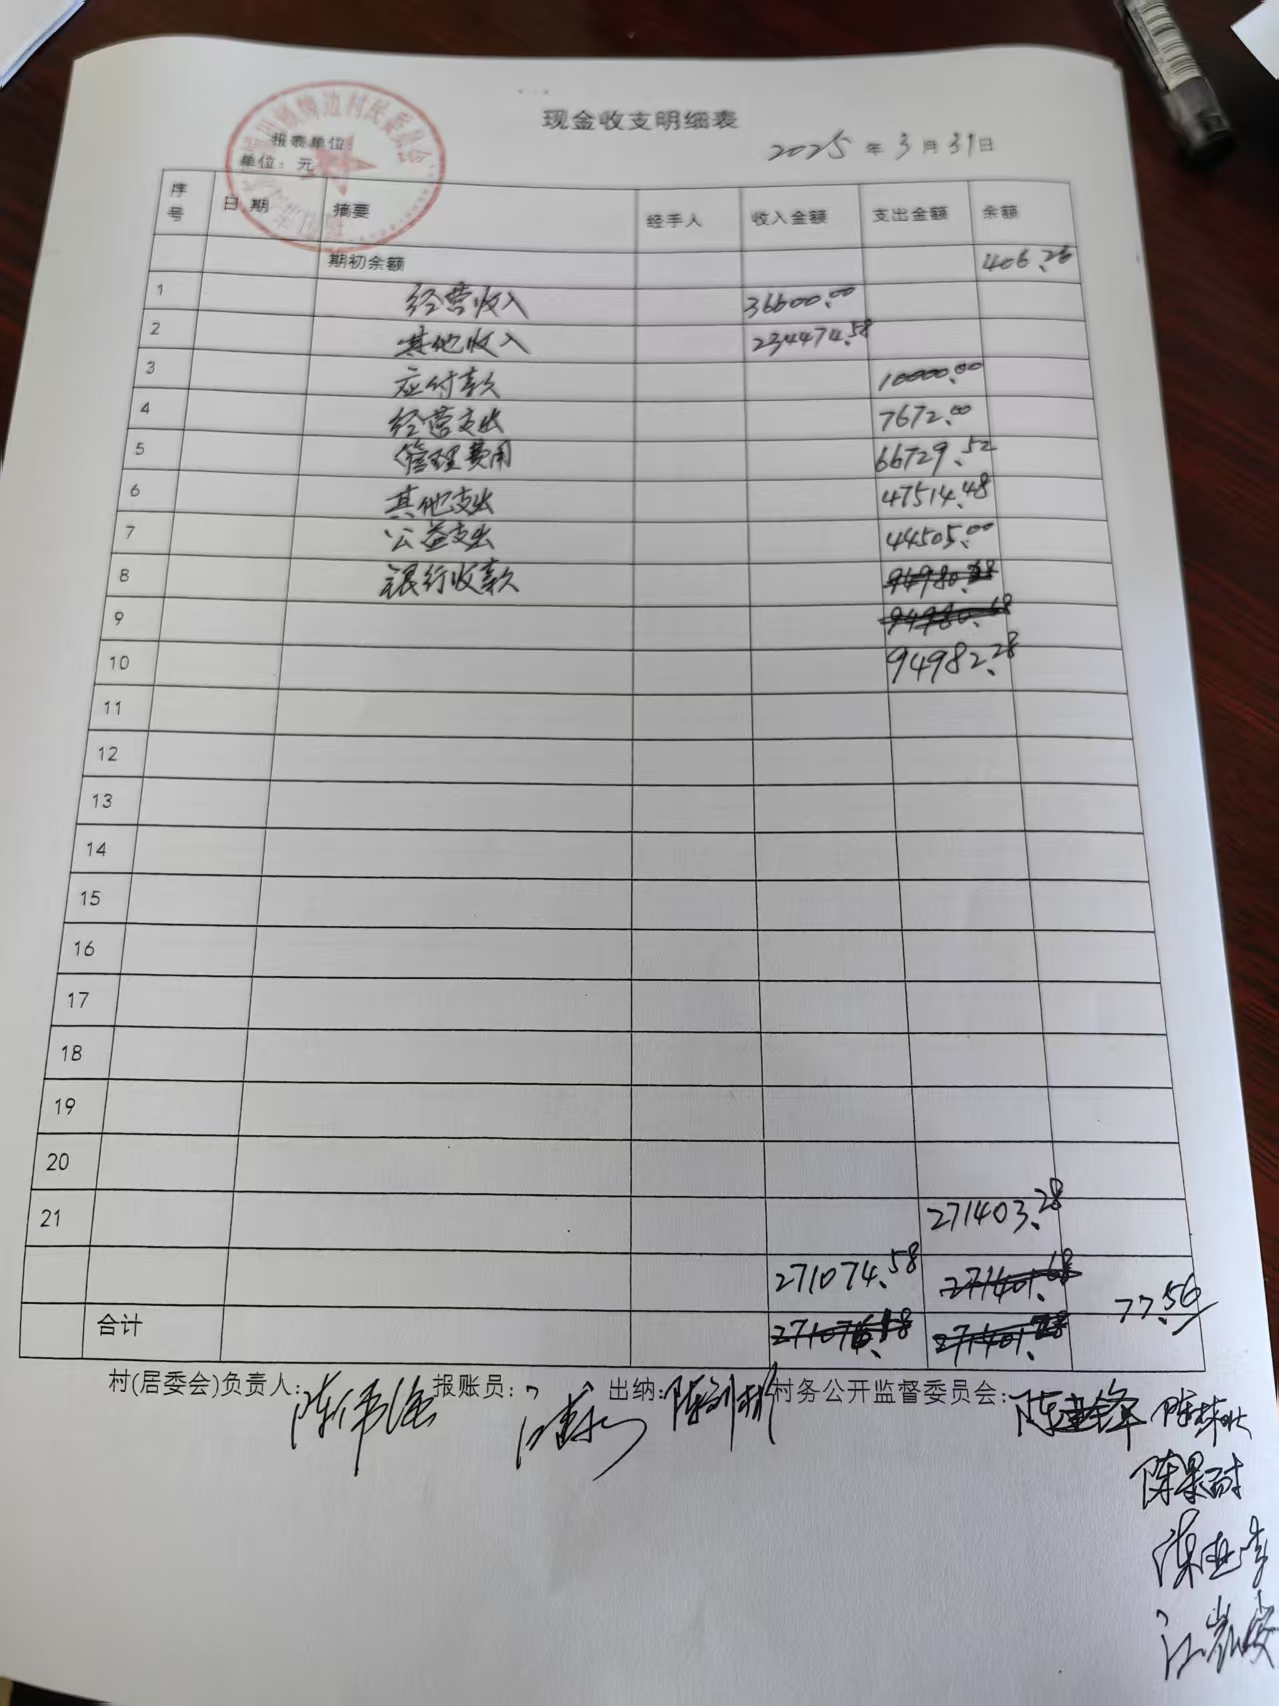 现金收支明细表
牌边村民委员会
报表单位
单位：元
2025年3月31日
序号 日期 摘要 经手人 收入金额 支出金额 余额
期初余额 406.26
1 经营收入 36600.00
2 其他收入 234474.58
3 应付款 10000.00
4 经营支出 7672.00
5 管理费用 66729.52
6 其他支出 47514.48
7 公益支出 44505.00
8 银行收款
9
10 94982.28
11
12
13
14
15
16
17
18
19
20
21 271403.28
271074.58 77.56
合计
村(居委会)负责人: 陈伟强 报账员: 出纳: 村务公开监督委员会: 陈建锋